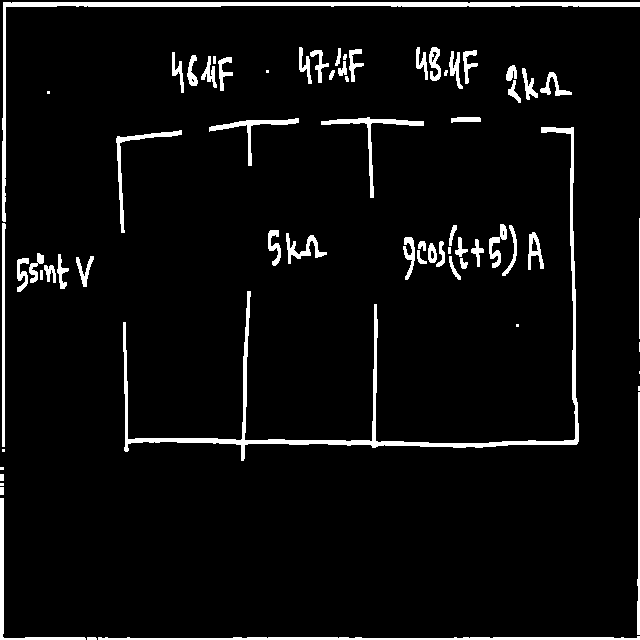 46µF 47µF 48µF 2kΩ
5sint V 5kΩ 9cos(t+5°) A